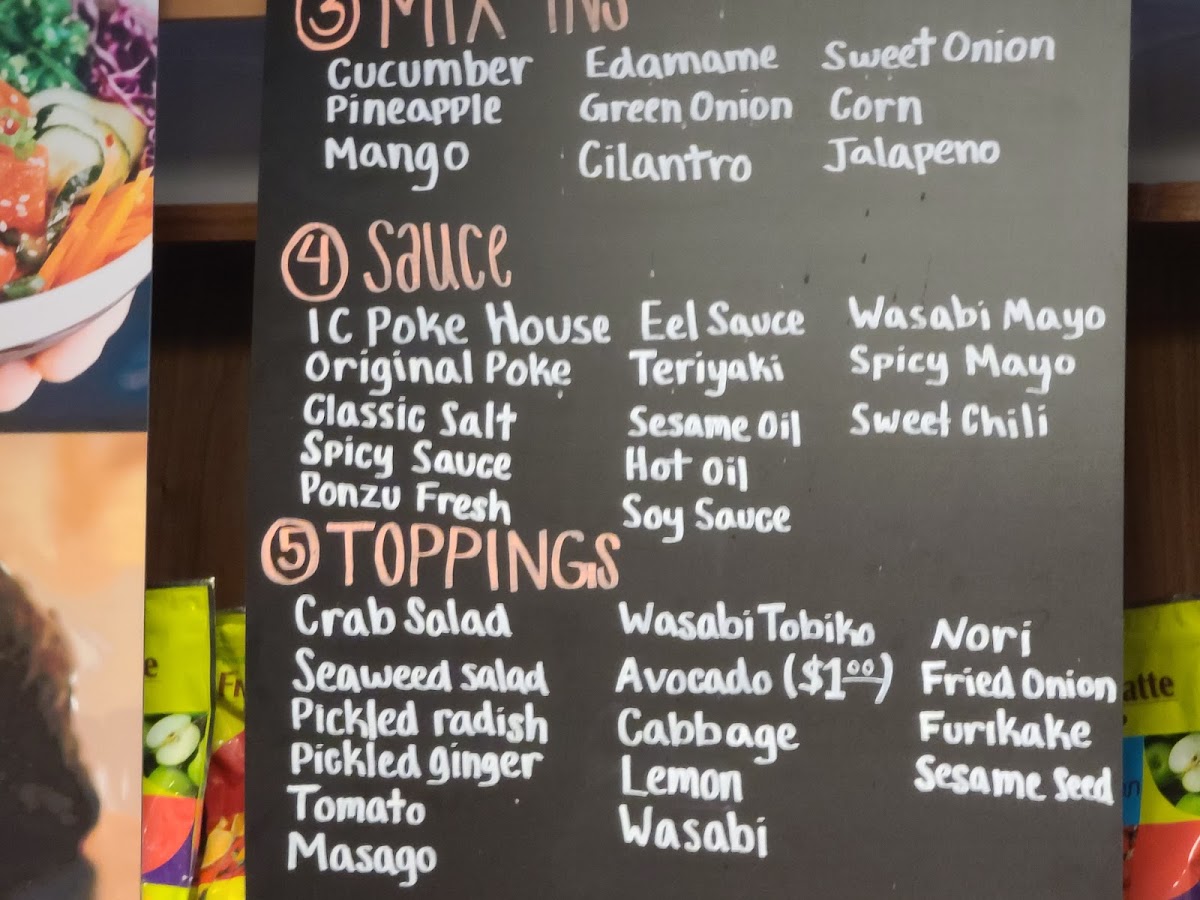 3 MIX INS
Cucumber Edamame Sweet Onion
Pineapple Green Onion Corn
Mango Cilantro Jalapeno
4 Sauce
IC Poke House Eel Sauce Wasabi Mayo
Original Poke Teriyaki Spicy Mayo
Classic Salt Sesame Oil Sweet Chili
Spicy Sauce Hot Oil
Ponzu Fresh Soy Sauce
5 TOPPINGS
Crab Salad Wasabi Tobiko Nori
Seaweed salad Avocado ($1.00) Fried Onion
Pickled radish Cabbage Furikake
Pickled ginger Lemon Sesame Seed
Tomato Wasabi
Masago